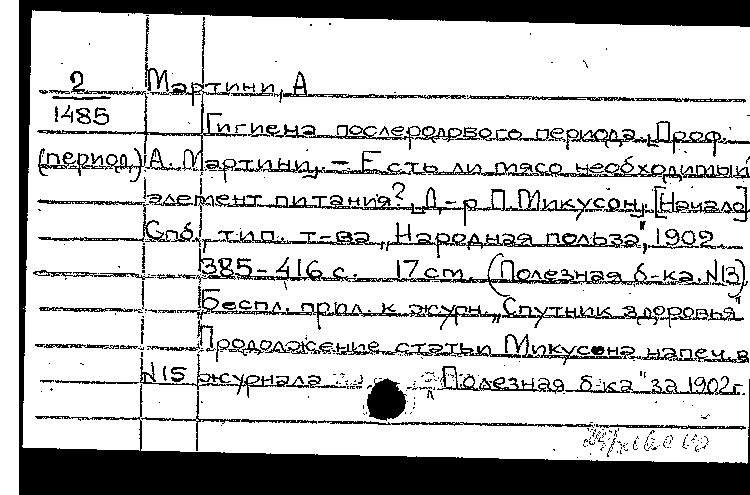 2 Мартини, А
1485 Гигиена послеродового периода, „Проф.
(период) А. Мартини„. – Есть ли мясо необходимый
элемент питания?, „Д-р П. Микусон„. [Начало]
Спб., тип. т-ва „Народная польза", 1902
385-416 с. 17 cm. (Полезная б-ка. N13)
Беспл. прил. к журн. „Спутник здоровья"
Продолжение статьи Микусона напеч. в
N15 журнала „Полезная б-ка" за 1902г.